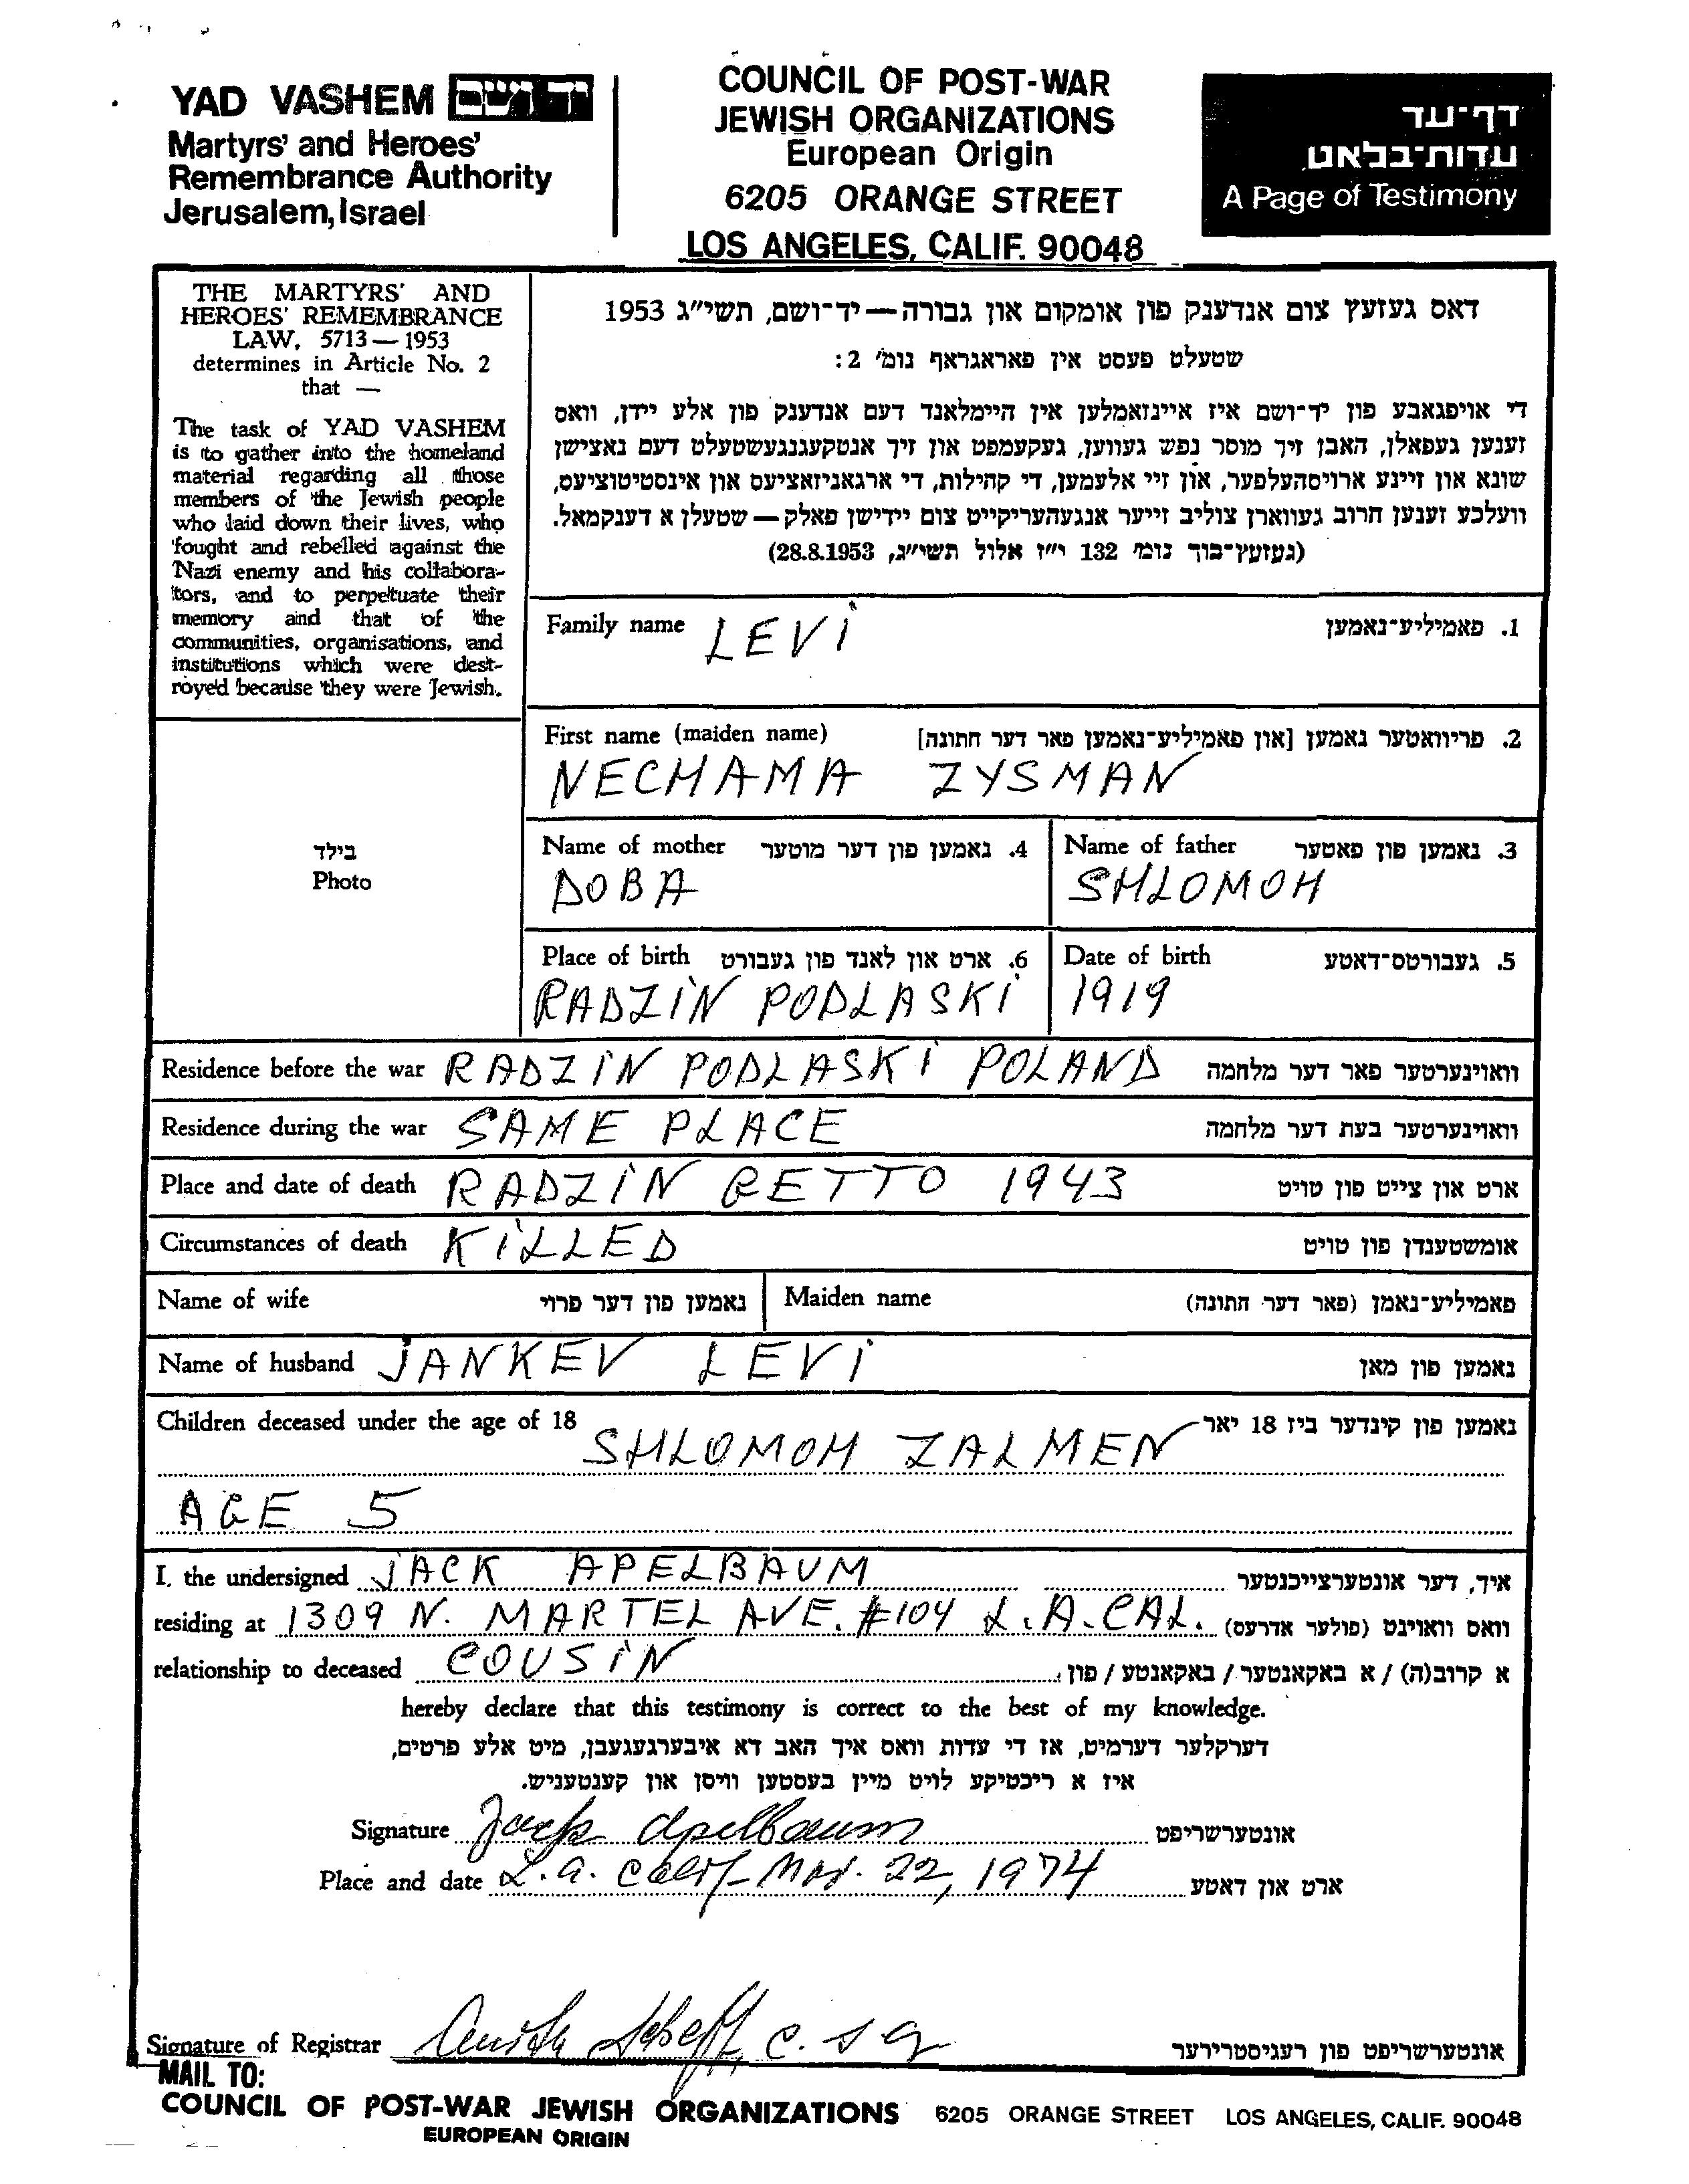 YAD VASHEM יד ושם
Martyrs' and Heroes'
Remembrance Authority
Jerusalem, Israel
COUNCIL OF POST-WAR
JEWISH ORGANIZATIONS
European Origin
6205 ORANGE STREET
LOS ANGELES, CALIF. 90048
דף־עד
עדות־בלאט
A Page of Testimony
THE MARTYRS' AND
HEROES' REMEMBRANCE
LAW, 5713—1953
determines in Article No. 2
that —
The task of YAD VASHEM
is to gather into the homeland
material regarding all those
members of the Jewish people
who laid down their lives, who
fought and rebelled against the
Nazi enemy and his collabora-
tors, and to perpetuate their
memory and that of the
communities, organisations, and
institutions which were dest-
royed because they were Jewish.
דאס געזעץ צום אנדענק פון אומקום און גבורה — יד־ושם, תשי"ג 1953
שטעלט פעסט אין פאראגראף נומ' 2:
די אויפגאבע פון יד־ושם איז איינזאמלען אין היימלאנד דעם אנדענק פון אלע יידן, וואס
זענען געפאלן, האבן זיך מוסר נפש געווען, געקעמפט און זיך אנטקעגנגעשטעלט דעם נאצישן
שונא און זיינע ארויסהעלפער, און זיי אלעמען, די קהילות, די ארגאניזאציעס און אינסטיטוציעס,
וועלכע זענען חרוב געווארן צוליב זייער אנגעהעריקייט צום יידישן פאלק — שטעלן א דענקמאל.
(געזעץ־בוך נומ' 132 י"ז אלול תשי"ג, 28.8.1953)
Family name LEVI 1. פאמיליע־נאמען
First name (maiden name) 2. פריוואטער נאמען [און פאמיליע־נאמען פאר דער חתונה]
NECHAMA ZYSMAN
בילד
Photo
Name of mother 4. נאמען פון דער מוטער Name of father 3. נאמען פון פאטער
DOBA SHLOMOH
Place of birth 6. ארט און לאנד פון געבורט Date of birth 5. געבורטס־דאטע
RADZIN PODLASKI 1919
Residence before the war RADZIN PODLASKI POLAND וואוינערטער פאר דער מלחמה
Residence during the war SAME PLACE וואוינערטער בעת דער מלחמה
Place and date of death RADZIN GETTO 1943 ארט און צייט פון טויט
Circumstances of death KILLED אומשטענדן פון טויט
Name of wife נאמען פון דער פרוי Maiden name פאמיליע־נאמן (פאר דער חתונה)
Name of husband JANKEV LEVI נאמען פון מאן
Children deceased under the age of 18 נאמען פון קינדער ביז 18 יאר
SHLOMOH ZALMEN
AGE 5
I, the undersigned JACK APELBAUM איך, דער אונטערצייכנטער
residing at 1309 N. MARTEL AVE. #104 L.A. CAL. וואס וואוינט (פולער אדרעס)
relationship to deceased COUSIN א קרוב(ה) / א באקאנטער / באקאנטע / פון
hereby declare that this testimony is correct to the best of my knowledge.
דערקלער דערמיט, אז די עדות וואס איך האב דא איבערגעגעבן, מיט אלע פרטים,
איז א ריכטיקע לויט מיין בעסטען וויסן און קענטעניש.
Signature Jack Apelbaum אונטערשריפט
Place and date L.A. Calif 22, 1974 ארט און דאטע
Signature of Registrar אונטערשריפט פון רעגיסטרירער
MAIL TO:
COUNCIL OF POST-WAR JEWISH ORGANIZATIONS 6205 ORANGE STREET LOS ANGELES, CALIF. 90048
EUROPEAN ORIGIN